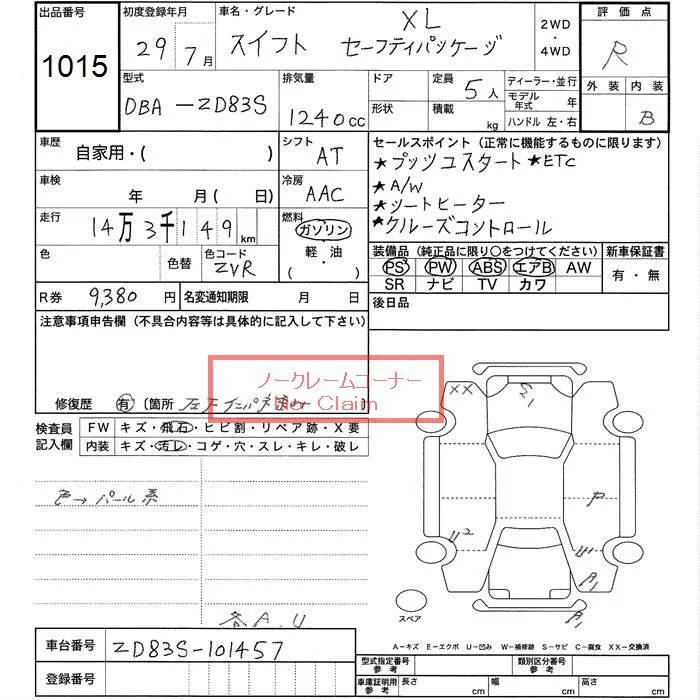 出品番号
1015
初度登録年月
29 7月
車名・グレード
スイフト XL
セーフティパッケージ
2WD
・
4WD
評価点
R
外装 内装
B
型式
DBA-ZD83S
排気量
1240cc
ドア
形状
定員 5人
積載 kg
ディーラー・並行
モデル年式 年
ハンドル 左・右
車歴
自家用・( )
シフト
AT
車検
年 月( 日)
冷房
AAC
走行
14万3千149km
燃料
ガソリン
軽・油
( )
色
色替
色コード
ZVR
セールスポイント (正常に機能するものに限ります)
★プッツュスタート ★ETC
★A/W
★シートヒーター
★クルーズコントロール
装備品 (純正品に限り○をつけてください)
PS PW ABS エアB AW
SR ナビ TV カワ
新車保証書
有・無
後日品
R券 9,380円
名変通知期限 月 日
注意事項申告欄 (不具合内容等は具体的に記入して下さい)
ノークレームコーナー
Claim
修復歴 有 〔箇所
検査員
記入欄
FW キズ・飛石・ヒビ割・リペア跡・X要
内装 キズ・汚レ・コゲ・穴・スレ・キレ・破レ
色→パール系
各A.U
XX
P
U2
U1
A1
A1
スペア
A-キズ E-エクボ U-凹み W-補修跡 S-サビ C-腐食 XX-交換済
車台番号 ZD83S-101457
登録番号
型式指定番号
参考
類別区分番号
参考
車庫証明用
参考
長さ cm
幅 cm
高さ cm